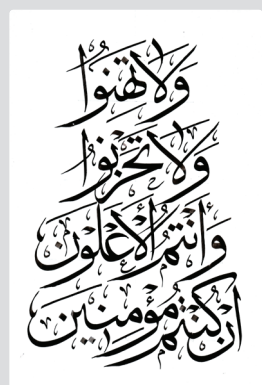 ولا تهنوا
ولا تحزنوا
وأنتم الأعلون
إن كنتم مؤمنين